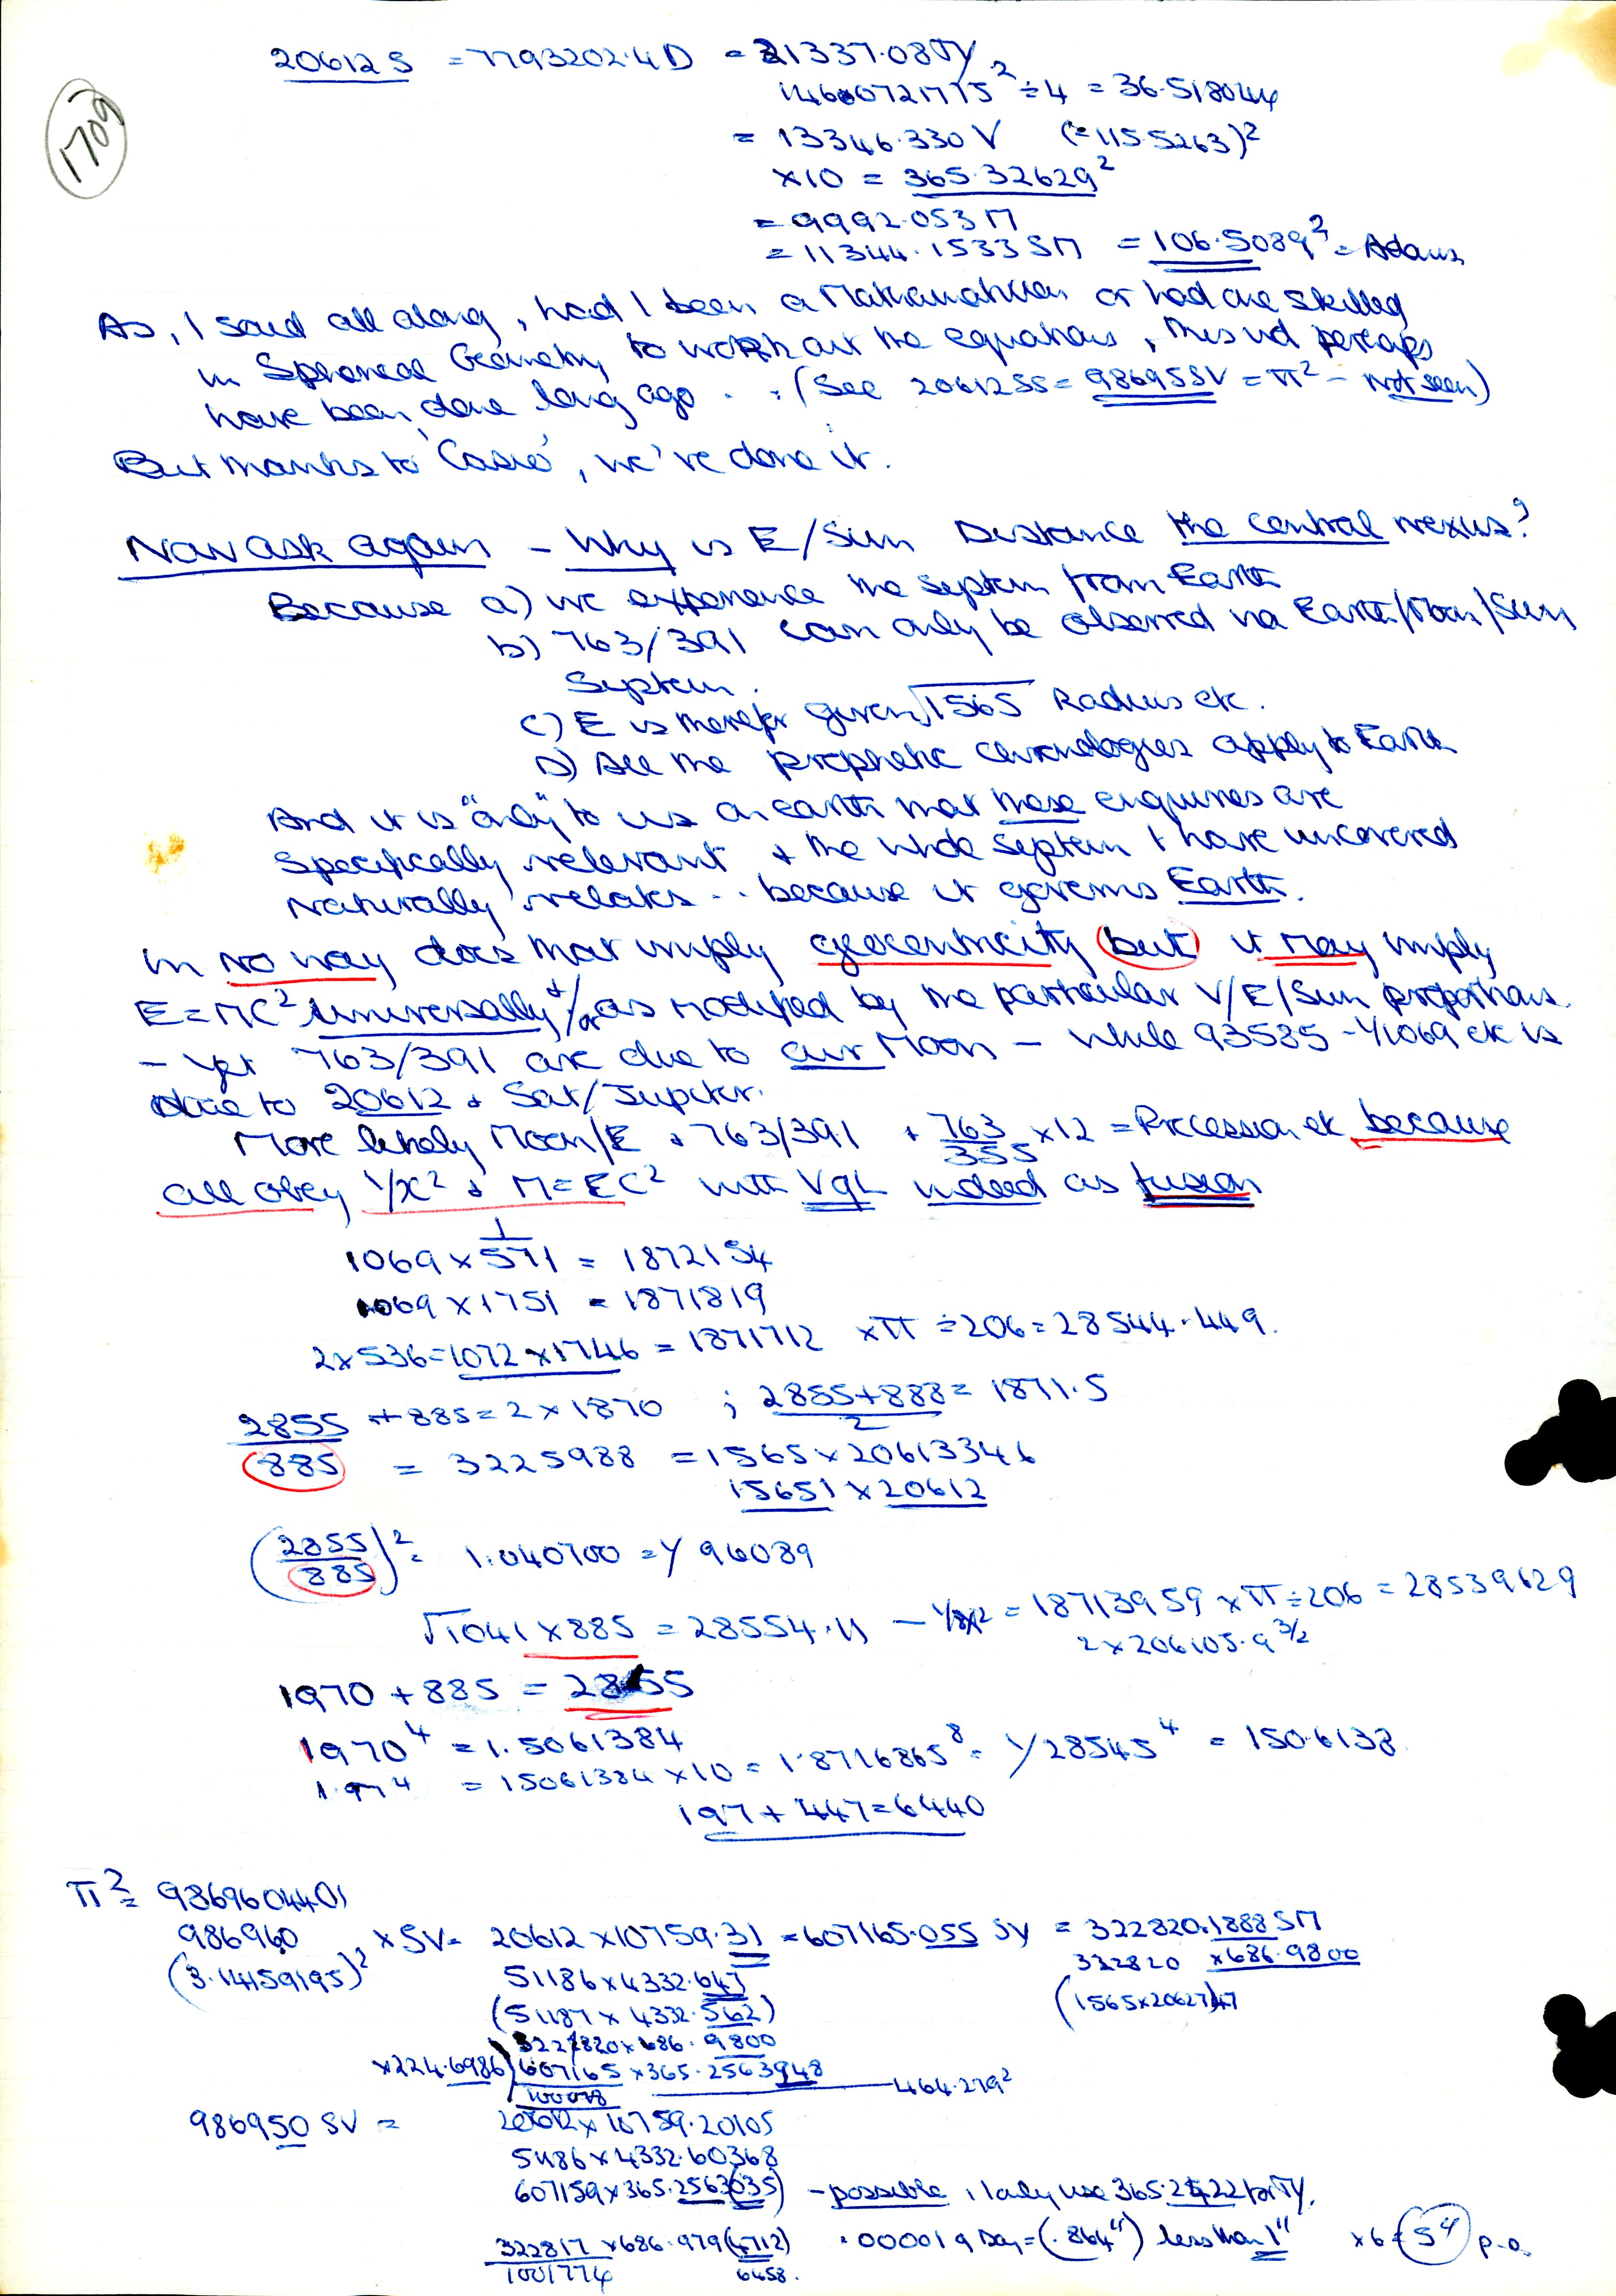 1709
20612 S = 7793202.4D = 21337.08TY
14600721775² ÷ 4 = 36.518044
= 13346.330 V (=115.5263)²
×10 = 365.32629²
= 9992.053 M
= 11344.1533 SM = 106.5089² = Adams
As, I said all along, had I been a Mathematician or had one skilled
in Spherical Geometry to work out the equations, this wd perhaps
have been done long ago . . : (See 20612SS = 98695SV = π² - not seen)
But thanks to 'Casio', we've done it.
Now ask again - Why is E/Sun Distance the central nexus?
Because a) we experience the system from Earth
b) 763/391 can only be observed via Earth/Moon/Sun
System.
c) E is therefor given √1565 Radius etc.
D) All the prophetic chronologies apply to Earth
And it is "only" to us on earth that these enquiries are
specifically relevant + the whole system I have uncovered
naturally relates .. because it governs Earth.
In no way does that imply geocentricity but it may imply
E=MC² universally +/or as modified by the particular V/E/Sun proportions.
- Yet 763/391 are due to our Moon - while 93585 - 1/1069 etc is
due to 20612 + Sat/Jupiter.
More likely Moon/E + 763/391 + 763/355 ×12 = Precession etc because
all obey 1/x² + M=EC² with VgL indeed as fusion
1069 × 1/571 = 1872154
1069 × 1751 = 1871819
2×536=1072×1746 = 1871712 ×π ÷206=28544.449.
2855 + 885 = 2×1870 ; 2855+888/2 = 1871.5
2855/885 = 3225988 = 1565×20613346
15651 × 20612
(2855/885)² = 1.040700 = 1/96089
√1041 × 885 = 28554.11 - 1/x² = 18713959 ×π÷206 = 28539629
2×206105.9 3/2
1970 + 885 = 2855
1970⁴ = 1.5061384
1.97⁴ = 15061384 ×10 = 1.8716865⁸ = 1/28545⁴ = 150.6138
197 + 447=6440
π² = 9869604401
986960 × SV = 20612×10759.31 = 607165.055 SY = 322820.1888 SM
(3.14159195)² 51186×4332.647 322820 ×686.9800
(51187 × 4332.562) (1565×20627)47
322820×686.9800
×224.6986) 607165 ×365.2563948 464.279²
100078
986950 SV = 20612×10759.20105
51186×4332.60368
607159×365.2563(035) - possible, I only use 365.2422 for TY.
322817 ×686.979(4712) .00001 9 Day = (.864") less than 1" ×6 = 5" p.a.
1001774 6458.